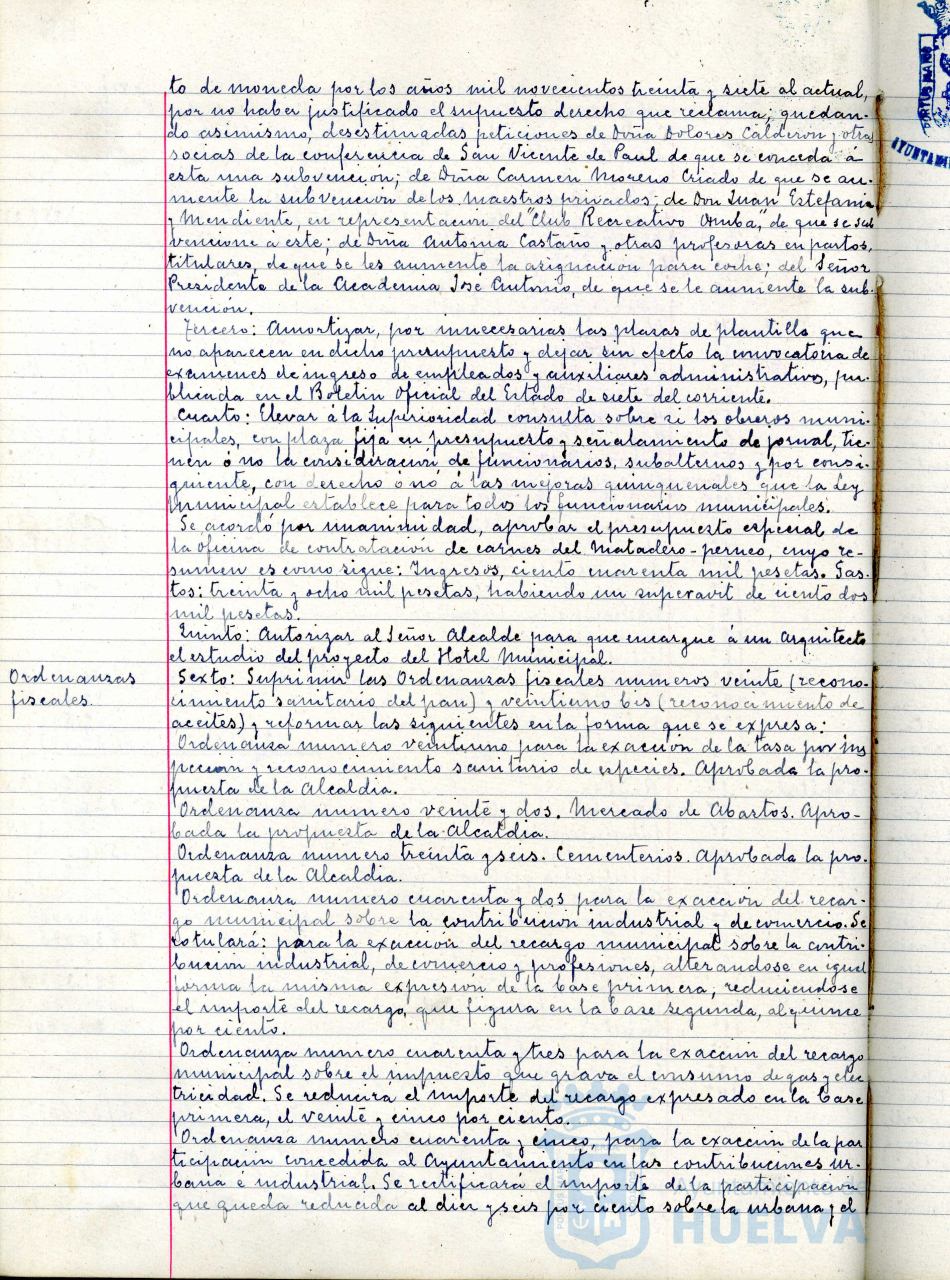 to de moneda por los años mil novecientos treinta y siete al actual,
por no haber justificado el supuesto derecho que reclama; quedan-
do asimismo, desestimadas peticiones de Doña Dolores Calderón y otras
socias de la conferencia de San Vicente de Paul de que se conceda á
esta una subvención; de Doña Carmen Moreno Criado de que se au-
mente la subvención de los maestros privados; de Don Juan Estefania
y Mendiente, en representación del "Club Recreativo Onuba", de que se sub
vencione á este; de Doña Antonia Castaño y otras profesoras en partos,
titulares, de que se les aumente la asignación para coche; del Señor
Presidente de la Academia José Antonio, de que se le aumente la sub-
vención.
Tercero: Amortizar, por innecesarias las plazas de plantilla que
no aparecen en dicho presupuesto y dejar sin efecto la convocatoria de
examenes de ingreso de empleados y auxiliares administrativos, pu-
blicada en el Boletin Oficial del Estado de siete del corriente.
Cuarto: Elevar á la Superioridad consulta sobre si los obreros muni-
cipales, con plaza fija en presupuesto y señalamiento de jornal, tie-
nen ó no la consideración de funcionários, subalternos y por consi-
guiente, con derecho ó nó á las mejoras quinquenales que la Ley
Municipal establece para todos los funcionarios municipales.
Se acordó por unanimidad, aprobar el presupuesto especial de
la oficina de contratación de carnes del Matadero-perneo, cuyo re-
sumen es como sigue: Ingresos, ciento cuarenta mil pesetas. Gas-
tos: treinta y ocho mil pesetas, habiendo un superavit de ciento dos
mil pesetas.
Quinto: Autorizar al Señor Alcalde para que encargue á un Arquitecto
el estudio del proyecto del Hotel Municipal.
Ordenanzas
fiscales.
Sexto: Suprimir las Ordenanzas fiscales numeros veinte (recono-
cimiento sanitario del pan) y veintiuno bis (reconocimiento de
aceites) y reformar las siguientes en la forma que se expresa:
Ordenanza numero veintiuno para la exacción de la tasa por ins
pección y reconocimiento sanitario de especies. Aprobada la pro-
puesta de la Alcaldia.
Ordenanza numero veinte y dos. Mercado de Abastos. Apro-
bada la propuesta de la Alcaldia.
Ordenanza numero treinta y seis. Cementerios. Aprobada la pro-
puesta de la Alcaldia.
Ordenanza numero cuarenta y dos para la exacción del recar-
go municipal sobre la contribución industrial y de comercio. Se
rotulará: para la exacción del recargo municipal sobre la contri-
bución industrial, de comercio y profesiones, alterandose en igual
forma la misma expresión de la base primera, reduciendose
el importe del recargo, que figura en la base segunda, al quince
por ciento.
Ordenanza numero cuarenta y tres para la exacción del recargo
municipal sobre el impuesto que grava el consumo de gas y elec
tricidad. Se reducirá el importe del recargo expresado en la base
primera, el veinte y cinco por ciento.
Ordenanza numero cuarenta y cinco, para la exacción de la par
ticipación concedida al Ayuntamiento en las contribuciones ur-
bana e industrial. Se rectificará el importe de la participación
que queda reducida al diez y seis por ciento sobre la urbana y el
HUELVA